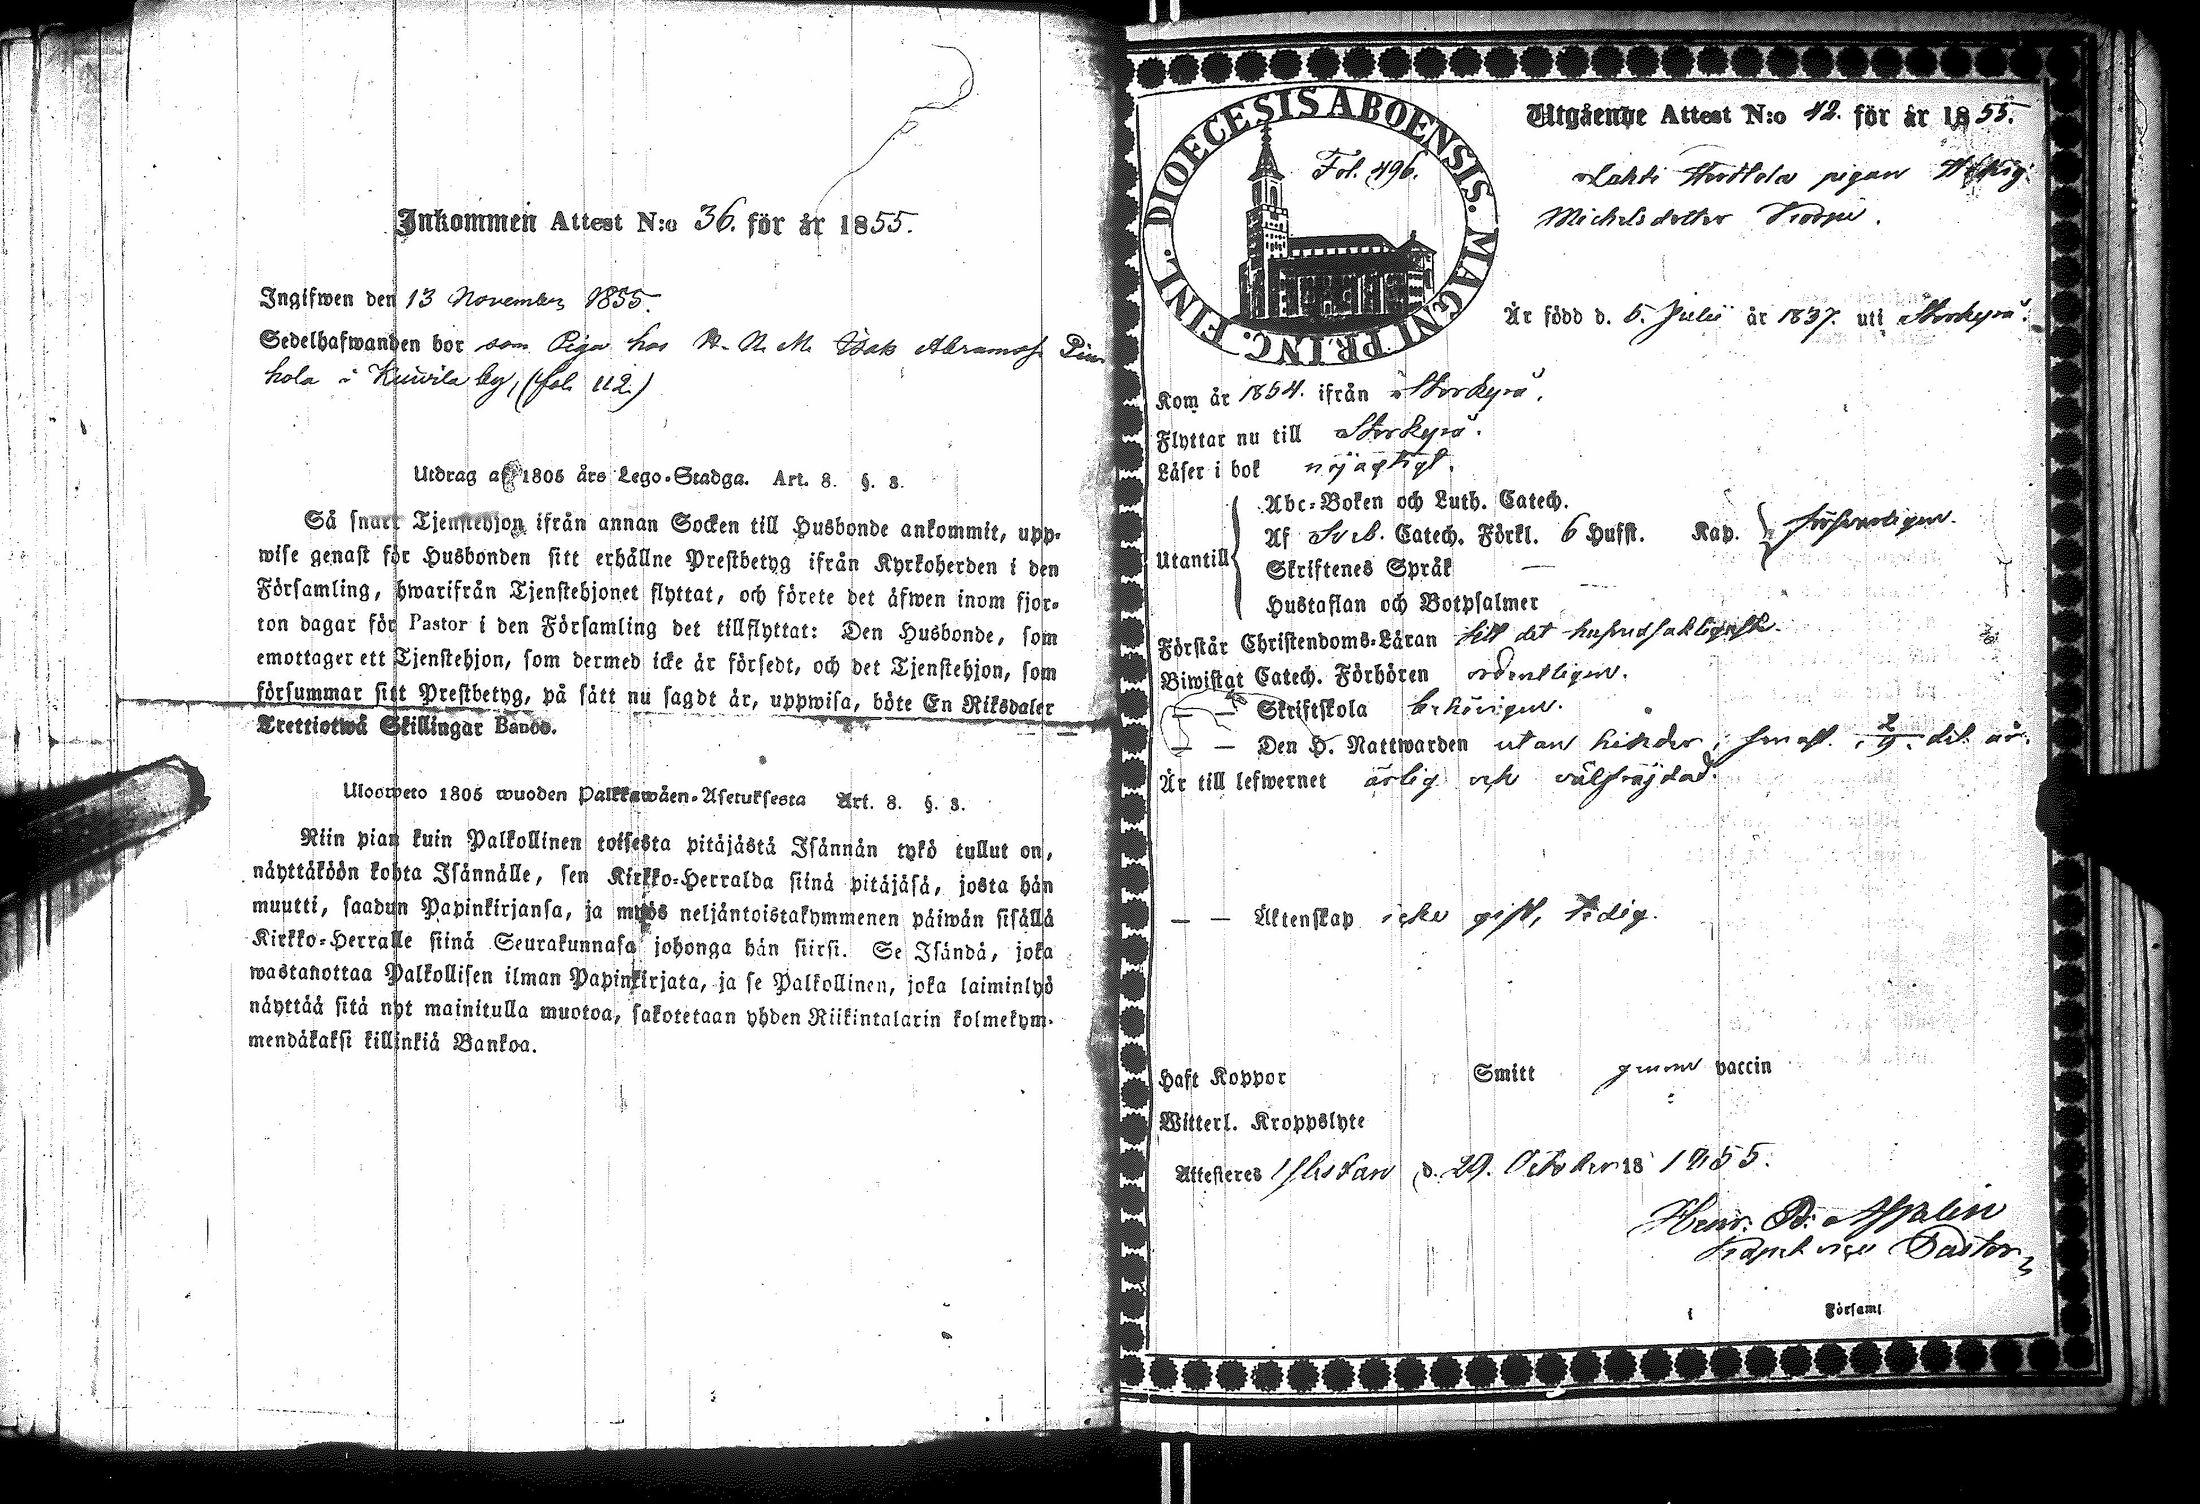 Inkommen Attest N:o 36. för år 1855.
Ingifwen den 13 November 1855.
Sedelhafwanden bor som Piga hos Isak Abramss
hola i Kuivila by, (fol. 112.)
Utdrag af 1805 års Lego-Stadga. Art. 8. §. 3.
Så snart Tjenstehjon ifrån annan Socken till Husbonde ankommit, upp-
wise genast för Husbonden sitt erhållne Prestbetyg ifrån Kyrkoherden i den
Församling, hwarifrån Tjenstehjonet flyttat, och förete det äfwen inom fjor-
ton dagar för Pastor i den Församling det tillflyttat: Den Husbonde, som
emottager ett Tjenstehjon, som dermed icke är försedt, och det Tjenstehjon, som
försummar sitt Prestbetyg, på sätt nu sagdt är, uppwisa, böte En Riksdaler
Trettiotwå Skillingar Banco.
Ulosweto 1805 wuoden Palkkawäen-Asetuksesta Art. 8. §. 3.
Niin pian kuin Palkollinen toisesta pitäjästä Isännän tykö tullut on,
näyttäköön kohta Isännälle, sen Kirkko-Herralda siinä pitäjäsä, josta hän
muutti, saadun Papinkirjansa, ja myös neljäntoistakymmenen päiwän sisällä
Kirkko-Herralle siinä Seurakunnasa johonga hän siirsi. Se Isändä, joka
wastanottaa Palkollisen ilman Papinkirjata, ja se Palkollinen, joka laiminlyö
näyttää sitä nyt mainitulla muotoa, sakotetaan yhden Riikintalarin kolmekym-
mendäkaksi killinkiä Bankoa.
DIOECESIS ABOENSIS. MAGNI PRINC. FINL.
Fol. 496.
Utgående Attest N:o 42. för år 1855.
Lahti pigan
Michelsdotter
Är född d. 5. Julii år 1837. uti Storkyro.
Kom år 1854. ifrån Storkyro.
Flyttar nu till Storkyro.
Läser i bok nöjagtigt.
Abc-Boken och Luth. Catech.
Utantill Af Sveb. Catech. Förkl. 6 Hufst. Kap. försvarligen.
Skriftenes Språk —
Hustaflan och Botpsalmer
Förstår Christendoms-Läran till det hufvudsakligaste.
Biwistat Catech. Förhören ordentligen.
— — Skriftskola behörigen.
— — Den H. Nattwarden utan hinder, senast 2/9. det. år.
Är till lefwernet ärlig och välfräjdad.
— — Äktenskap icke gift, ledig.
Haft Koppor Smitt genom vaccin
Witterl. Kroppslyte
Attesteras Ylistaro d. 29. October 18 1855.
Henr. B. Malin
Pastor
Församl